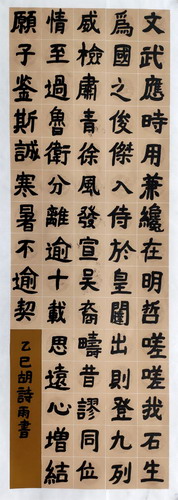 文武應時用兼纔在明哲嗟嗟我石生
爲國之俊傑入侍於皇闥出則登九列
威檢肅青徐風發宣吳裔疇昔謬同位
情至過魯衛分離逾十載思遠心增結
願子鉴斯誠寒暑不逾契
乙巳胡詩雨書